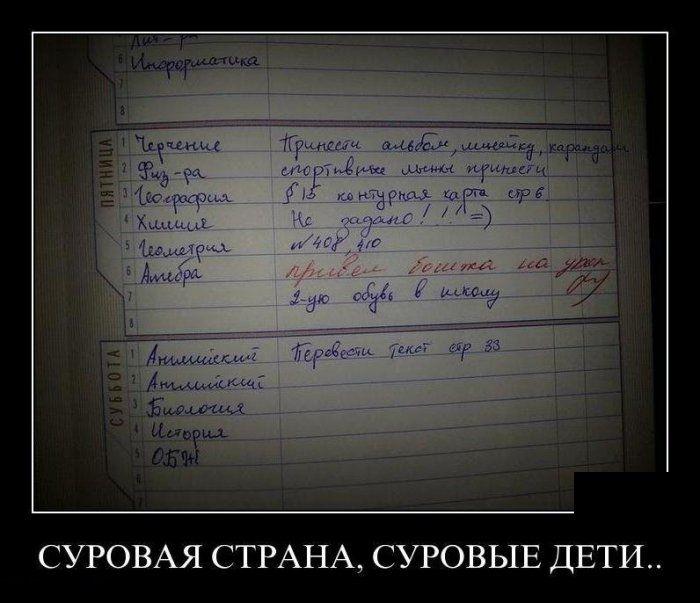 Лит-ра
6 Информатика
7
8
ПЯТНИЦА
1 Черчение Принести альбом, линейку, карандаш
2 Физ-ра спортивные лыжи принести
3 География § 15 контурная карта стр 6.
4 Химия Не задано! !! =)
5 Геометрия №408, 410
6 Алгебра привел бомжа на урок
7 2-ую обувь в школу
8
СУББОТА
1 Английский Перевести текст стр 33
2 Английский
3 Биология
4 История
5 ОБЖ
6
7
СУРОВАЯ СТРАНА, СУРОВЫЕ ДЕТИ..